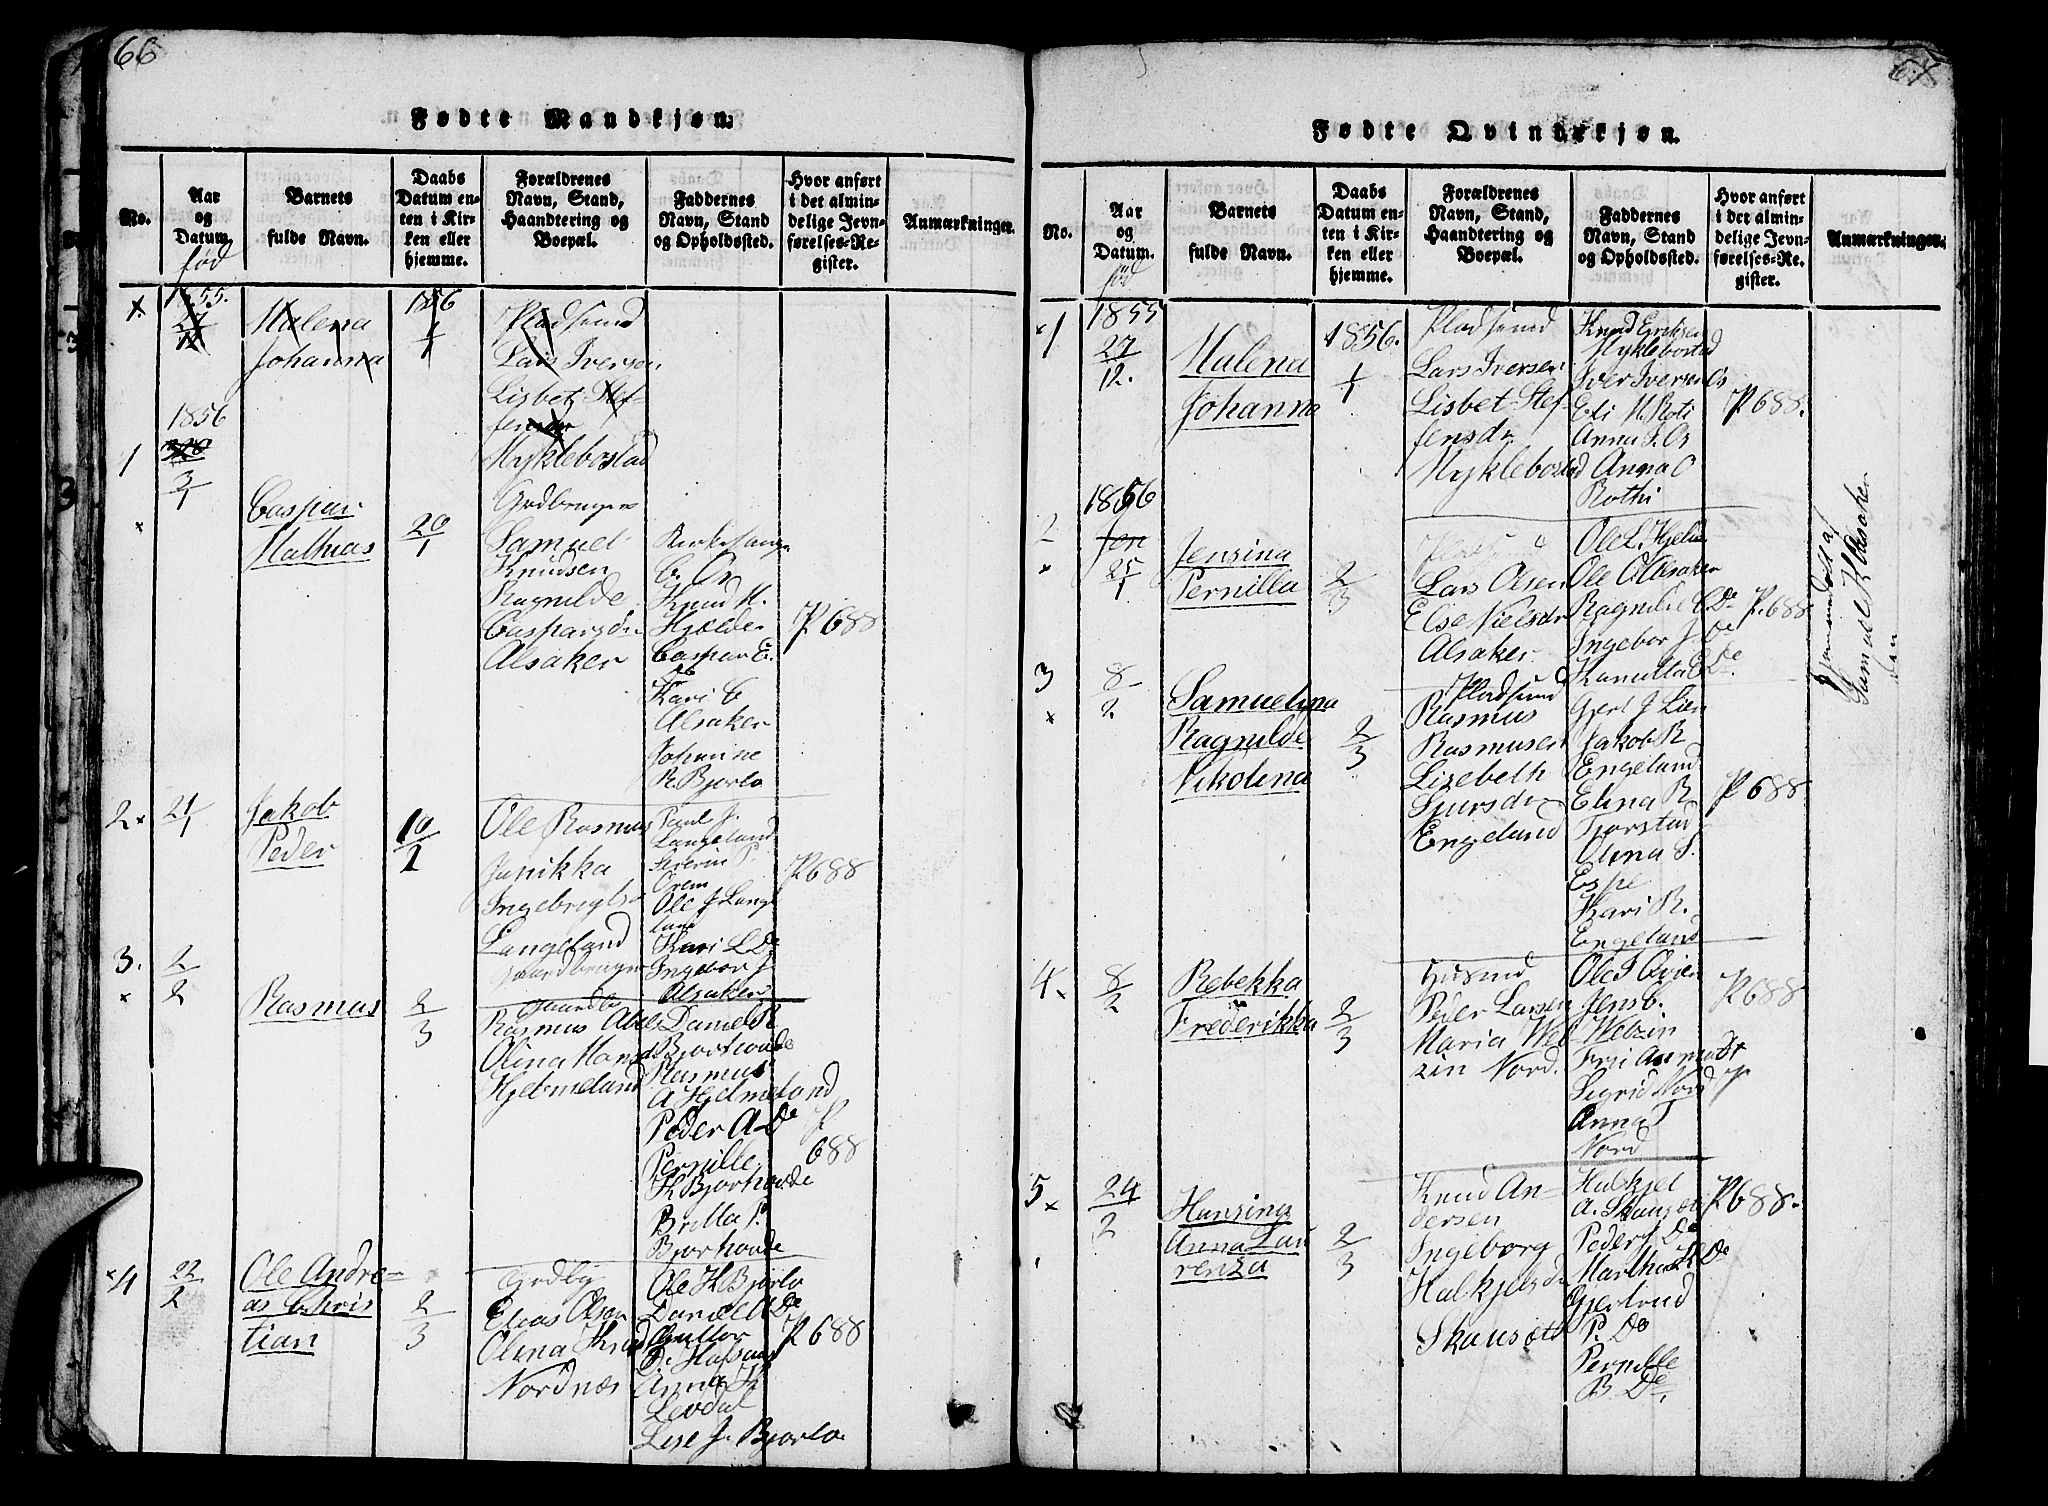 66
Fødte Mandkjøn.
No.
Aar og Datum.
fød
Barnets fulde Navn.
Daabs Datum enten i Kirken eller hjemme.
Forældrenes Navn, Stand, Haandtering og Boepæl.
Faddernes Navn, Stand og Opholdssted.
Hvor anført i det almindelige Jevnførelses-Register.
Anmærkninger.
1. 1855. 27/12
Malena
Johanna
1856 1/1
Pladsmd
Lars Iversen
Lisbet Stef-
fensdr
Myklebostad
1856
1 3/1
Caspar
Mathias
20/1
Grdbruger
Samuel
Knudsen
Ragnilde
Casparsdr
Alsaker
Kirkesanger
C. Os
Knud M.
Hjelde
Caspar E.
Do
Kari C
Alsaker
Johanne
R. Bjorlo
P 688
2 × 21/1
Jakob
Peder
10/2
Ole Rasmus
Janikka
Ingebrigtsd
Langeland
Gaardbruger
Paul J.
Langeland
Severin P.
Orem
Ole J Lange
land
Kari L Do
Ingebor J
Alsaker
P 688
3. × 2/2
Rasmus
2/3
Gaardbr
Rasmus Abels
Olina Hansd
Hjelmeland
Daniel R
Bjorhovde
Rasmus
A Hjelmeland
Peder A Do
Pernille
K Bjorhovde
Britta P.
Bjorhovde
P
688
×4 22/2
Ole Andre-
as Chris
tian
2/3
Grdbr
Elias Olsen
Olina Knud
Nordnæs
Ole K Bjorlo
Daniel A Do
Guttor
D. Hafsaas
Anna K
Levdal
Lise J. Bjorlo
P 688
67
Fødte Qvindekjøn.
No.
Aar og Datum.
fød
Barnets fulde Navn.
Daabs Datum enten i Kirken eller hjemme.
Forældrenes Navn, Stand, Haandtering og Boepæl.
Faddernes Navn, Stand og Opholdssted.
Hvor anført i det almindelige Jevnførelses-Register.
Anmærkninger.
×1 1855 27/12.
Malena
Johanna
1856. 1/1
Pladsmd
Lars Iversen
Lisbet Stef
fensdr
Myklebostad
Knud Eriksen
Myklebostad
Iver Iversen Os
Eli M. Roti
Anna I. Os
Anna O
Rothi
P 688.
1856
2 × Jan 25/1
Jensina
Pernilla
2/3
Pladsmd
Lars Olsen
Else Nielsdr
Alsaker
Ole L. Hjelm
Ole O Alsaker
Ragnilde C Do
Ingebor J Do
Kanutta C Do
P. 688
Hjemmedøbt af
Samuel K Alsaker
3 × 8/2
Samuelina
Ragnilde
Nikolina
2/3
Pladsmd
Rasmus
Rasmusen
Lisebeth
Sjursdr
Engeland
Gjert J Lien
Jakob R
Engeland
Elina R
Tjorstad
Olina S.
Espe
Kari R.
Engeland
P 688
4 × 8/2
Rebekka
Frederikka
2/3
Husmd
Peder Larsen
Maria Wel
zin Nord
Ole T Qvien
Jens C.
Welzin
Sigrid Nord
Anna T
Nord
P 688
5 × 24/2
Hansina
Anna Lau
renza
2/3
Knud An-
dersen
Ingeborg
Halkjelsdr
Skausæt
Halkjel
A. Skausæt
Peder J Do
Martha K Do
Gjertrud
P. Do
Pernille
B Do
P 688.